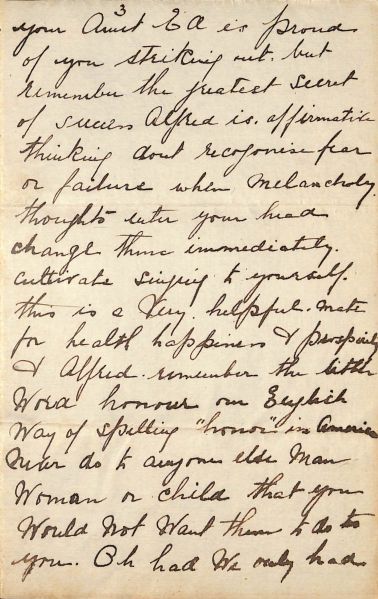 3
your Aunt Ed is proud
of you striking out. but
remember the greatest secret
of success Alfred is. affirmative
thinking dont recogonise fear
or failure when Melancholy
thoughts enter your head
change them immediately.
Cultivate singing to yourself.
this is a Very. helpful. mate
for health happiness & prosperity
& Alfred. remember the little
Word honour our English
Way of spelling "honor" in America
Never do to anyone else Man
Woman or child that you
Would Not Want them to do to
you. Oh had We only had